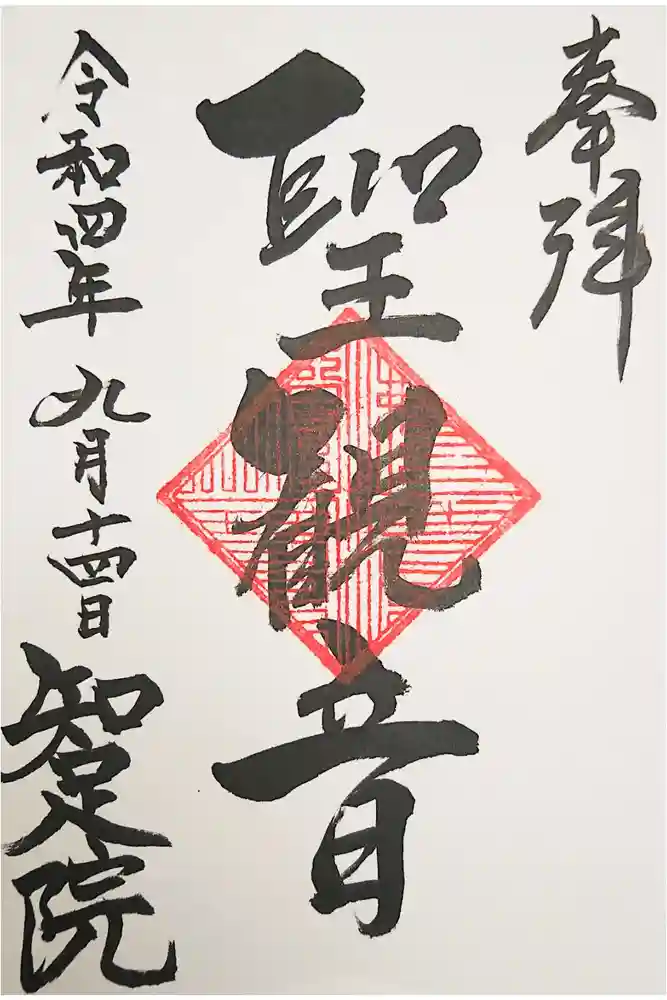 奉拝
聖観音
令和四年 九月十四日 知足院